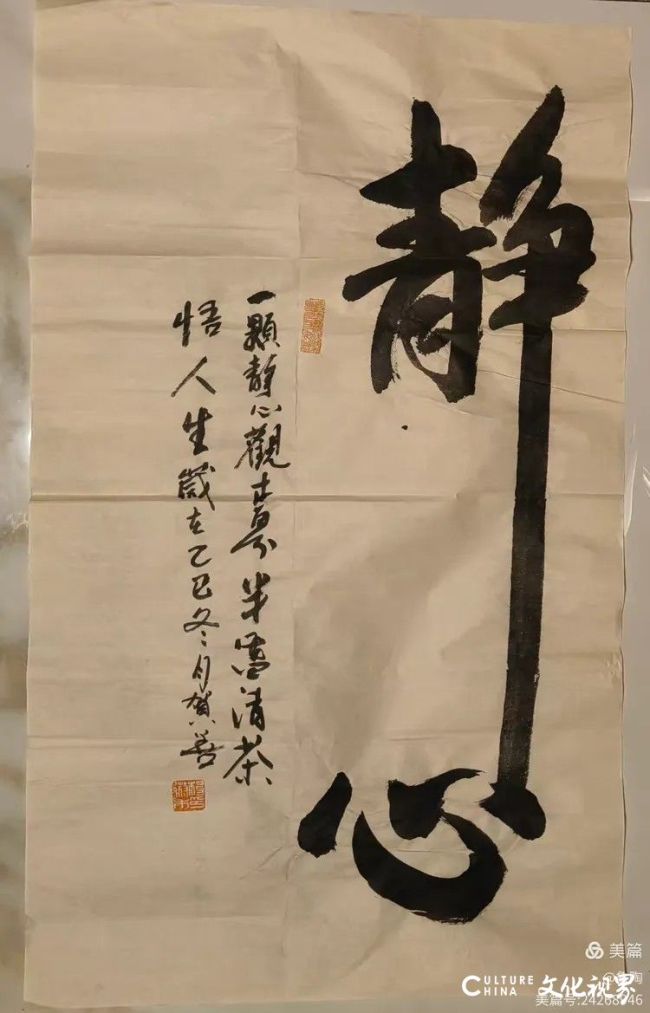 静心
一颗静心观世界半盏清茶
悟人生岁在乙巳冬月贺善
美篇
CULTURE CHINA 文化视界
美篇号:24268946